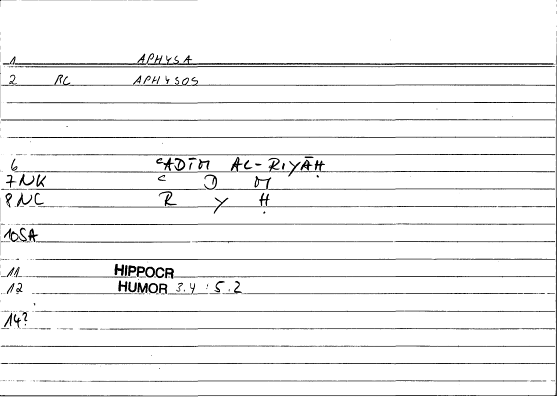 1 APHYSA
2 RC APHYSOS
6 ʿADĪM AL-RIYĀḤ
7 NK ʿ D M
8 NC R Y Ḥ
10 SA
11 HIPPOCR
12 HUMOR 3.4 : 5.2
14?